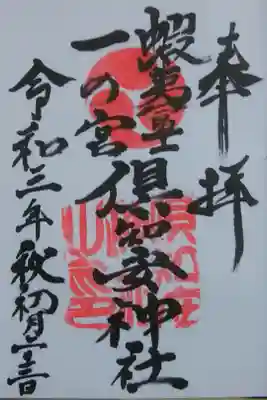 奉拝
蝦夷富士
一の宮
倶知安神社
令和三年秋初月